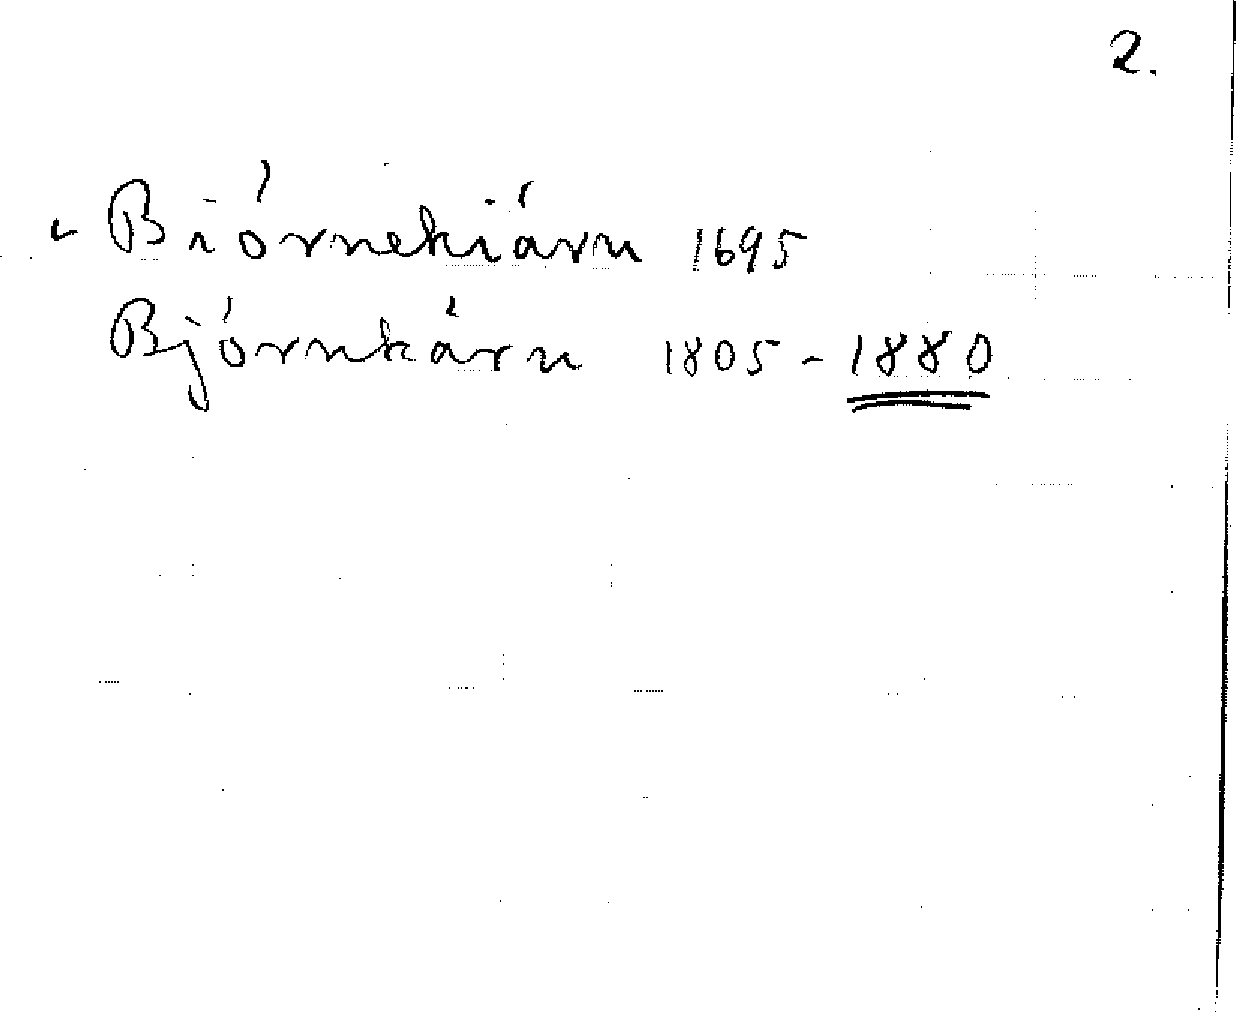 2.
Biórnekiárn 1695
Bjórnkárn 1805 - 1880